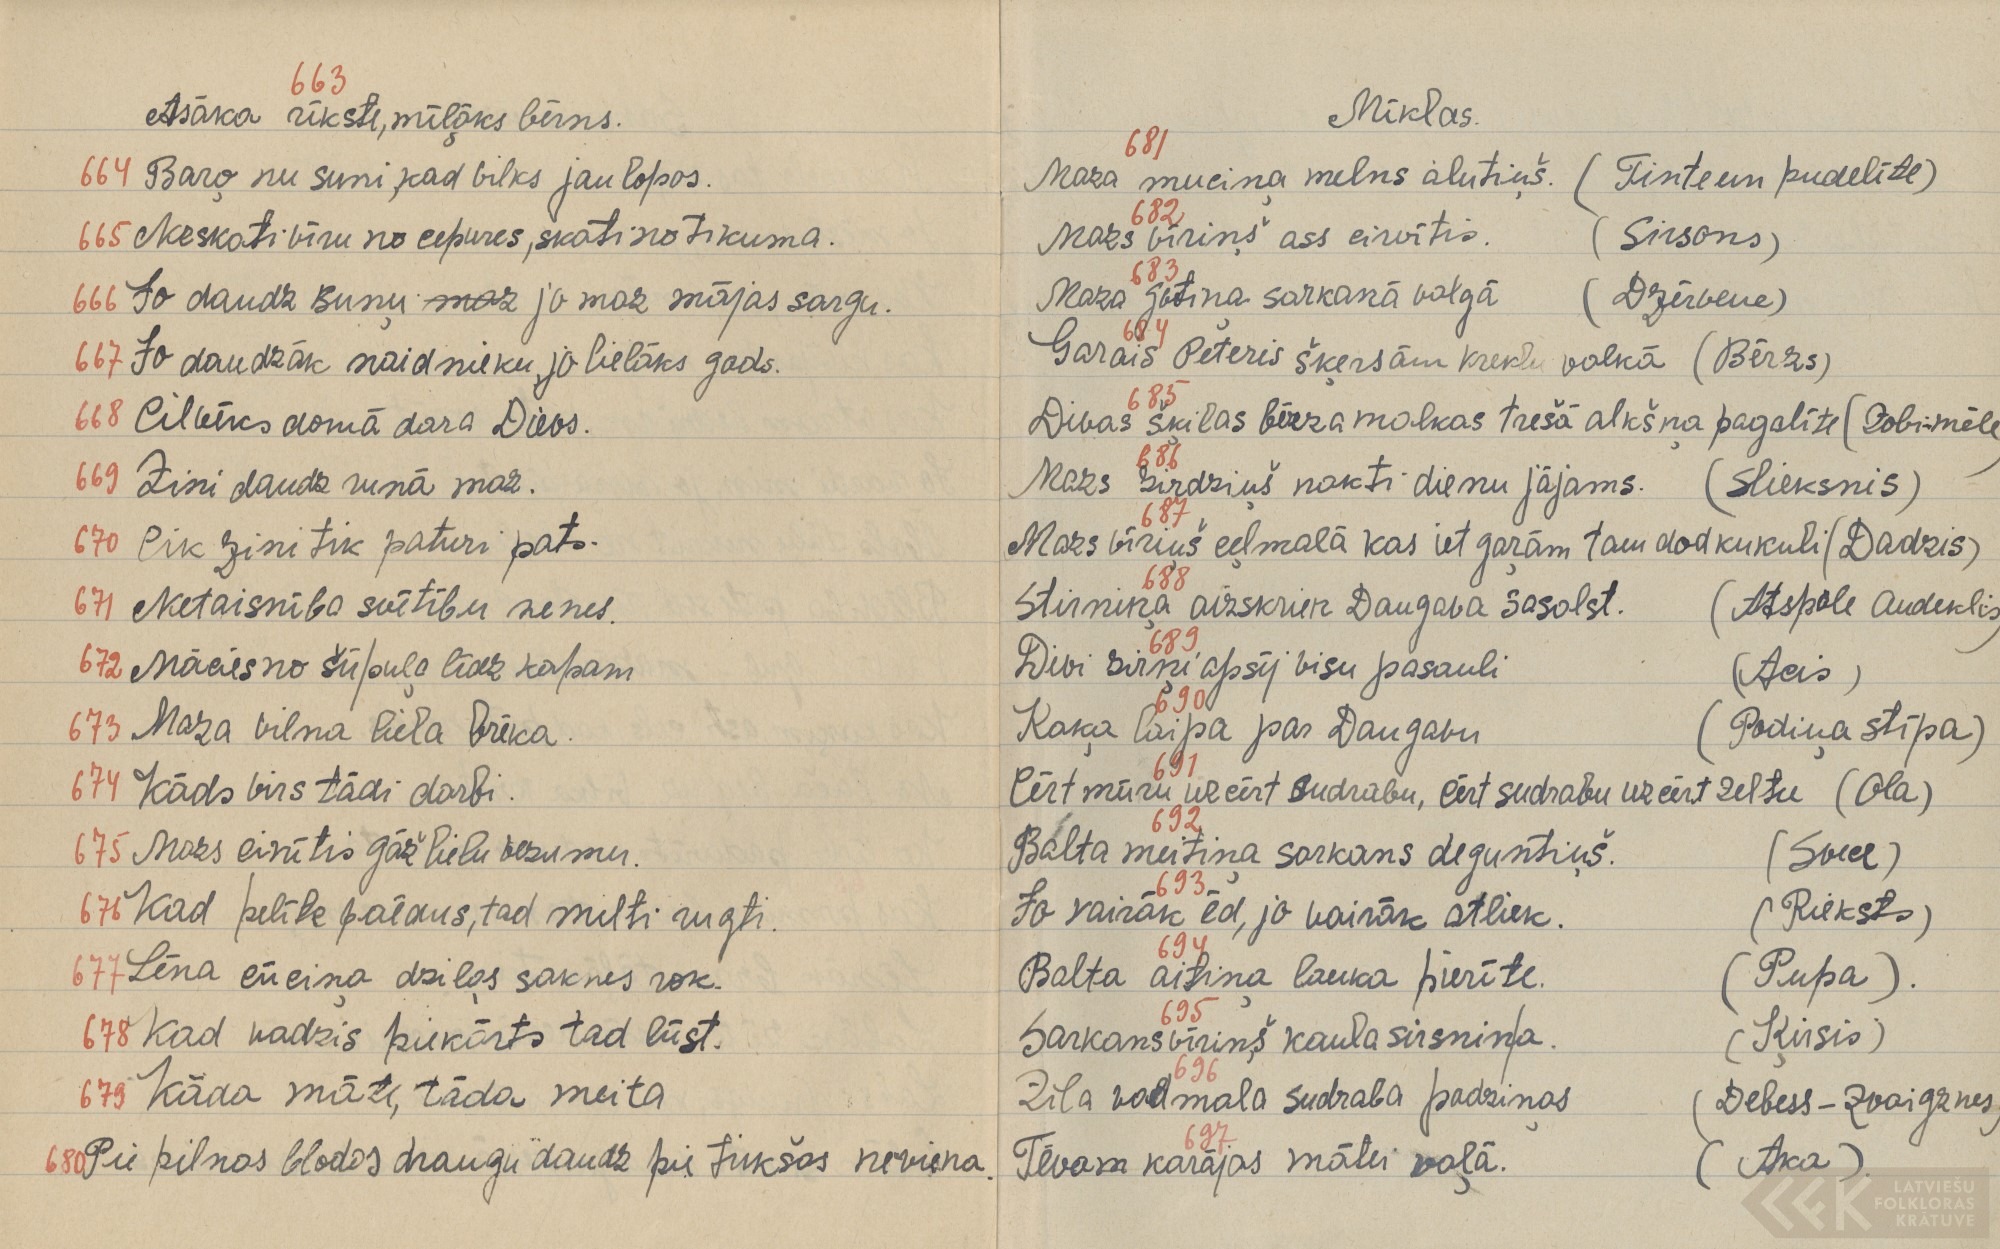 663
Asāka rīkste, mīļāks bērns.
664 Baro nu suni, kad vilks jau lopos.
665 Neskati vīru no cepures, skati no tikuma.
666 Jo daudz suņu maz jo maz mājas sargu.
667 Jo daudzāk naidnieku, jo lielāks gods.
668 Cilvēks domā dara Dievs.
669 Zini daudz runā maz.
670 Cik zini tik paturi pats.
671 Netaisnība svētību nenes.
672 Mācies no šūpuļa līdz kapam
673 Maza vilna liela brēka.
674 Kāds virs tādi darbi.
675 Mazs cinītis gāž lielu vezumu.
676 Kad pelīte paēdus, tad milti rugti.
677 Lēna cūciņa dziļas saknes rok.
678 Kad vadzis piekārts tad lūst.
679 Kāda māte, tāda meita
680 Pie pilnas blodas draugu daudz pie tukšas neviena.
Mīklas.
681
Maza muciņa melns alutiņš. (Tinte un pudelīte)
682
Mazs vīriņš ass cirvītis. (Sirsons)
683
Maza gotiņa sarkanā valgā (Dzērvene)
684
Garais Pēteris šķērsām kreklu valkā (Bērzs)
685
Divas šķilas bērza malkas trešā alkšņa pagalīte (Zobi-mēle)
686
Mazs zirdziņš nakti dienu jājams. (Slieksnis)
687
Mazs vīriņš ceļmalā kas iet gaŗām tam dod kukuli (Dadzis)
688
Stirniņa aizskrien Daugava sasalst. (Atspole Audeklis)
689
Divi zirņi apsij visu pasauli (Acis)
690
Kaķa laipa par Daugavu (Podiņa stīpa)
691
Cērt mūru uzcērt sudrabu, cērt sudrabu uzcērt zeltu (Ola)
692
Balta meitiņa sarkans deguntiņš. (Svece)
693
Jo vairāk ēd, jo vairāk atliek. (Rieksts)
694
Balta aitiņa lauka pierīte. (Pupa).
695
Sarkans vīriņš kaula sirsniņa. (Ķirsis)
696
Zila vadmala sudraba podziņas (Debess - zvaigznes)
697
Tēvam karājas mātei vaļā. (Aka)
LATVIEŠU
FOLKLORAS
KRĀTUVE